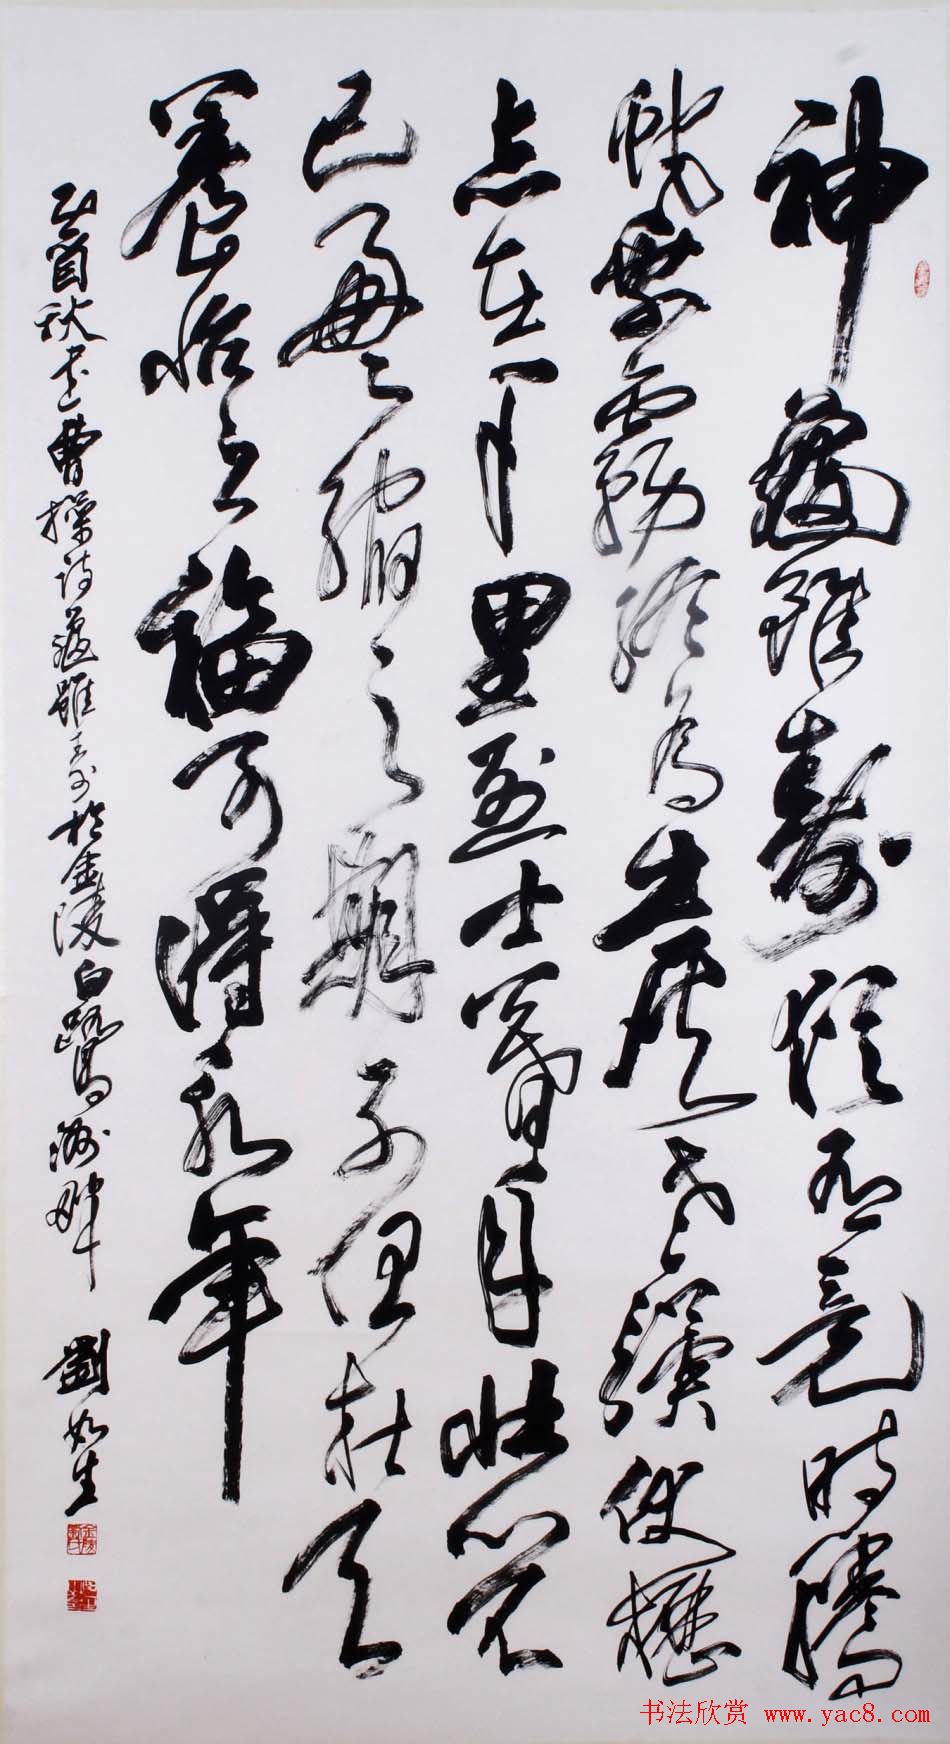 神龜雖壽猶有竟時騰
蛇乘霧終為土灰老驥伏櫪
志在千里烈士暮年壯心不
已盈縮之期不但在天
養怡之福可得永年
乙酉秋書曹操詩龜雖壽於金陵白鷺洲畔 劉如生
书法欣赏 www.yac8.com